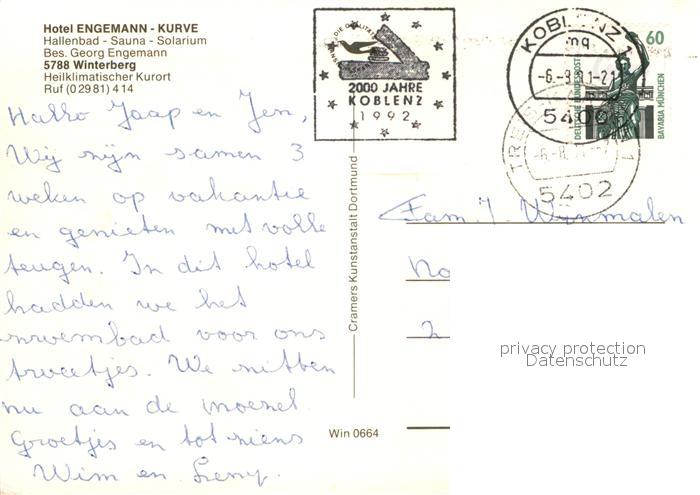 Hotel ENGEMANN - KURVE
Hallenbad - Sauna - Solarium
Bes. Georg Engemann
5788 Winterberg
Heilklimatischer Kurort
Ruf (0 29 81) 4 14
Hallo Jaap en Jen,
Wij zijn samen 3
weken op vakantie
en genieten met volle
teugen. In dit hotel
hadden we het
zwembad voor ons
tweetjes. We zitten
nu aan de moezel.
Groetjes en tot ziens
Wim en Leny.
2000 JAHRE
KOBLENZ
1992
KOBLENZ 1
mq
5400
5402
60
DEUTSCHE BUNDESPOST
BAVARIA MÜNCHEN
Cramers Kunstanstalt Dortmund
Fam. J. Wijnmalen
No
2
Win 0664
privacy protection
Datenschutz